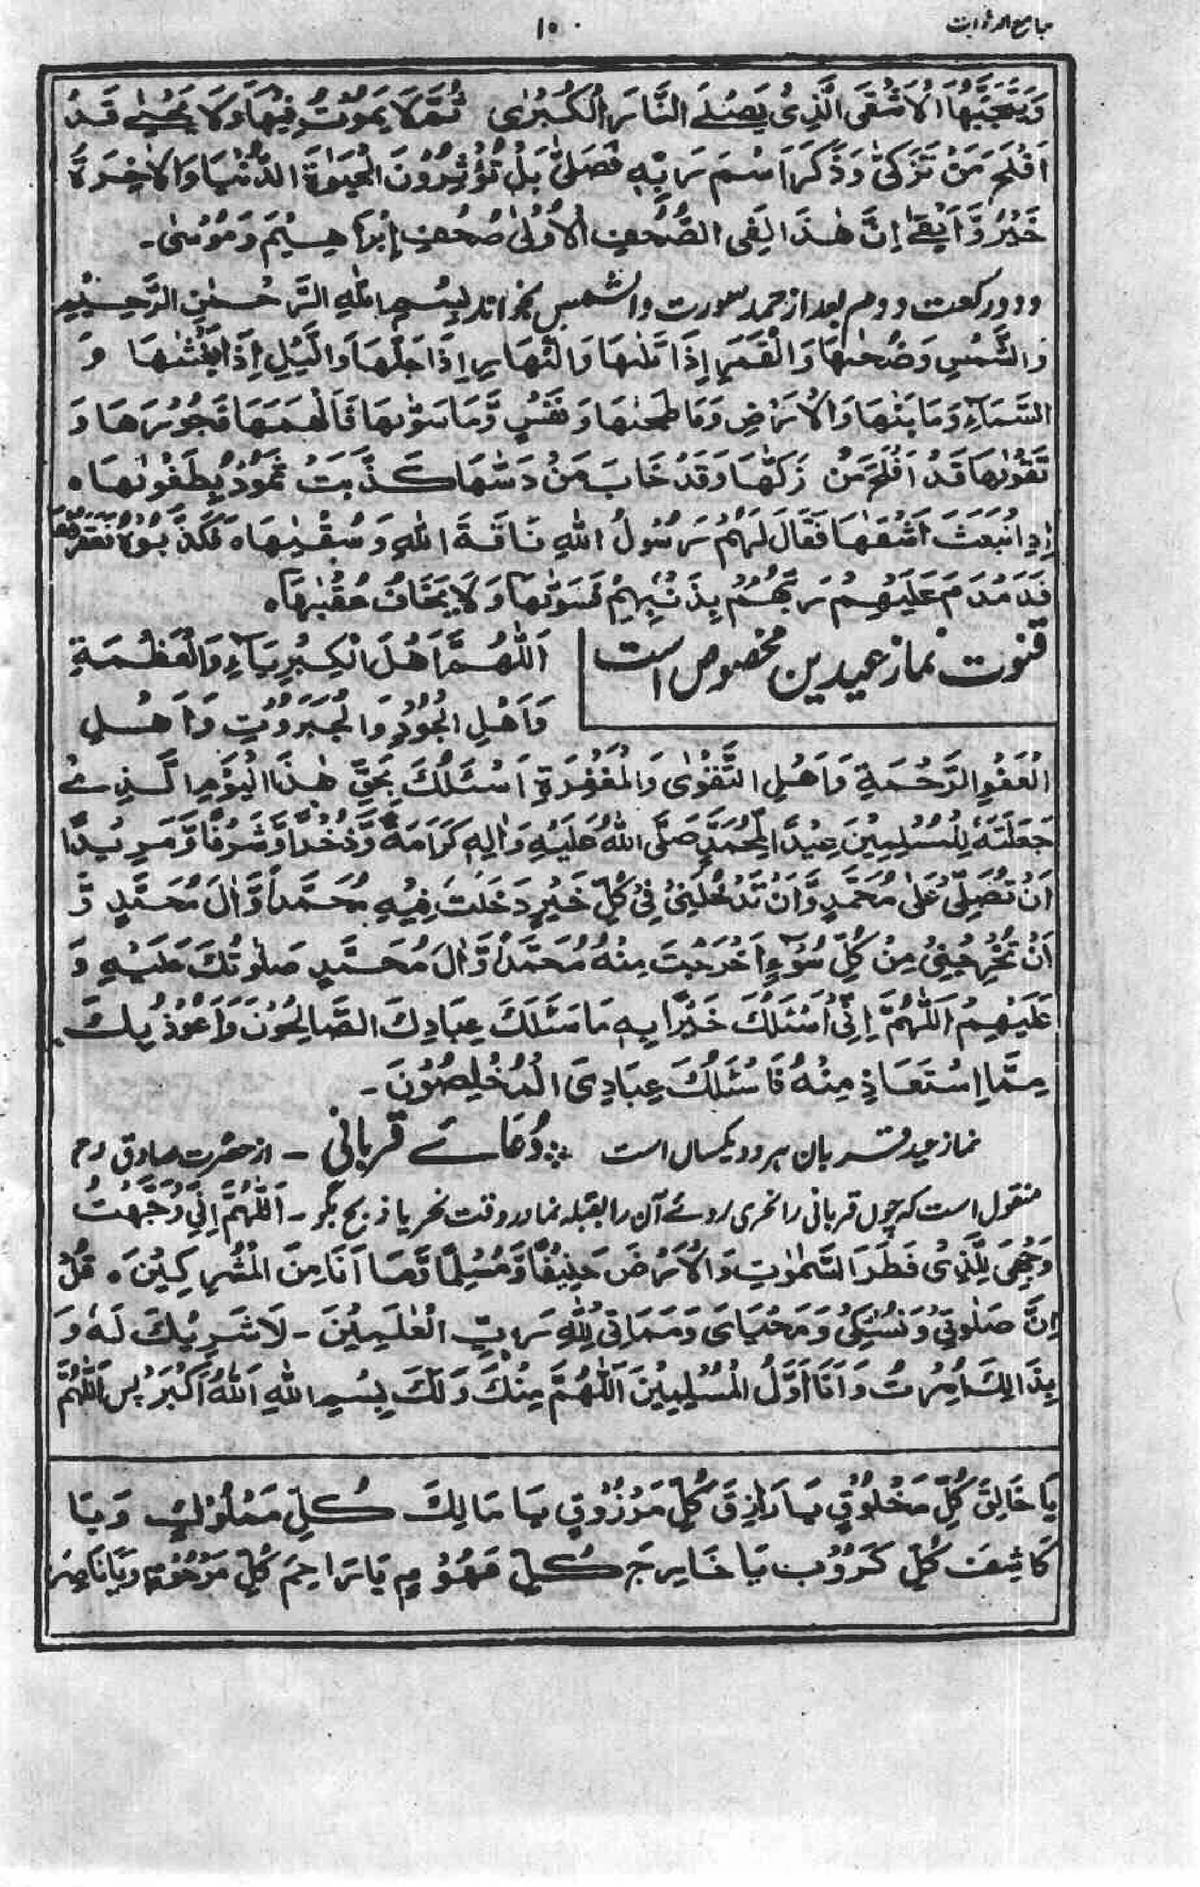 جامع الدعوات
۱۵۰
وَيَتَجَنَّبُهَا الْاَشْقَى الَّذِىْ يَصْلَے النَّارَ الْكُبْرٰى ثُمَّ لَا يَمُوْتُ فِيْهَا وَلَا يَحْيٰے قَدْ
اَفْلَحَ مَنْ تَزَكّٰى وَذَكَرَ اسْمَ رَبِّهٖ فَصَلّٰى بَلْ تُؤْثِرُوْنَ الْحَيٰوةَ الدُّنْيَا وَالْاٰخِرَةُ
خَيْرٌ وَّاَبْقٰے اِنَّ هٰذَا لَفِى الصُّحُفِ الْاُوْلٰى صُحُفِ اِبْرَاهِيْمَ وَمُوْسٰى۔
ودور کعت دوم بعد از حمد سورت والشمس بخواند بِسْمِ اللّٰهِ الرَّحْمٰنِ الرَّحِيْمِ
وَالشَّمْسِ وَضُحٰىهَا وَالْقَمَرِ اِذَا تَلٰىهَا وَالنَّهَارِ اِذَا جَلّٰهَا وَالَّيْلِ اِذَا يَغْشٰىهَا وَ
السَّمَآءِ وَمَا بَنٰهَا وَالْاَرْضِ وَمَا طَحٰىهَا وَنَفْسٍ وَّمَا سَوّٰىهَا فَاَلْهَمَهَا فُجُوْرَهَا وَ
تَقْوٰىهَا قَدْ اَفْلَحَ مَنْ زَكّٰهَا وَقَدْ خَابَ مَنْ دَسّٰهَا كَذَّبَتْ ثَمُوْدُ بِطَغْوٰىهَاه
اِذِ انْبَعَثَ اَشْقٰهَا فَقَالَ لَهُمْ رَسُوْلُ اللّٰهِ نَاقَةَ اللّٰهِ وَسُقْيٰهَاه فَكَذَّبُوْهُ فَعَقَرُوْهَا
فَدَمْدَمَ عَلَيْهِمْ رَبُّهُمْ بِذَنْبِهِمْ فَسَوّٰىهَا وَلَا يَخَافُ عُقْبٰهَاه
قنوت نماز عیدین مخصوص است
اَللّٰهُمَّ اَهْلَ الْكِبْرِيَآءِ وَالْعَظْمَةِ
وَاَهْلِ الْجُوْدِ وَالْجَبَرُوْتِ وَاَهْلِ
الْعَفْوِ الرَّحْمَةِ وَاَهْلِ التَّقْوٰى وَالْمَغْفِرَةِ اَسْئَلُكَ بِحَقِّ هٰذَا الْيَوْمِ الَّذِىْ
جَعَلْتَهٗ لِلْمُسْلِمِيْنَ عِيْدًا لِمُحَمَّدٍ صَلَّى اللّٰهُ عَلَيْهِ وَاٰلِهٖ كَرَامَةً وَّذُخْرًا وَّشَرَفًا وَّمَزِيْدًا
اَنْ تُصَلِّىَ عَلٰى مُحَمَّدٍ وَّاَنْ تُدْخِلَنِىْ فِىْ كُلِّ خَيْرٍ دَخَلْتَ فِيْهِ مُحَمَّدًا وَّاٰلَ مُحَمَّدٍ وَّ
اَنْ تُخْرِجَنِىْ مِنْ كُلِّ سُوْٓءٍ اَخْرَجْتَ مِنْهُ مُحَمَّدًا وَّاٰلَ مُحَمَّدٍ صَلٰوتُكَ عَلَيْهِ وَ
عَلَيْهِمْ اَللّٰهُمَّ اِنِّىْ اَسْئَلُكَ خَيْرًا بِهٖ مَا سَئَلَكَ عِبَادُكَ الصَّالِحُوْنَ وَاَعُوْذُ بِكَ
مِمَّا اِسْتَعَاذِ مِنْهُ فَاسْئَلُكَ عِبَادِىَ الْمُخْلِصُوْنَ۔
نماز عید قربان ہر دو یکساں است ؞ دُعائے قربانی – از حضرت صادق رح
منقول است کہ چوں قربانی را نحری روئے آں را بقبلہ نما در وقت نحر یا ذبح بگو۔ اَللّٰهُمَّ اِنِّىْ وَجَّهْتُ
وَجْهِىَ لِلَّذِىْ فَطَرَ السَّمٰوٰتِ وَالْاَرْضَ حَنِيْفًا وَّمُسْلِمًا وَّمَا اَنَا مِنَ الْمُشْرِكِيْنَ ه قُلْ
اِنَّ صَلٰوتِىْ وَنُسُكِىْ وَمَحْيَاىَ وَمَمَاتِىْ لِلّٰهِ رَبِّ الْعٰلَمِيْنَ – لَا شَرِيْكَ لَهٗ وَ
بِذَالِكَ اُمِرْتُ وَاَنَا اَوَّلُ الْمُسْلِمِيْنَ اَللّٰهُمَّ مِنْكَ وَلَكَ بِسْمِ اللّٰهِ اَللّٰهُ اَكْبَرُ بس اَللّٰهُمَّ
يَا خَالِقَ كُلِّ مَخْلُوْقٍ يَا رَازِقَ كُلِّ مَرْزُوْقٍ يَا مَالِكَ كُلِّ مَمْلُوْكٍ وَيَا
كَاشِفَ كُلِّ كَرُوْبٍ يَا فَارِجَ كُلِّ مَهْمُوْمٍ يَا رَاحِمَ كُلِّ مَرْحُوْمٍ وَيَا نَاصِرَ